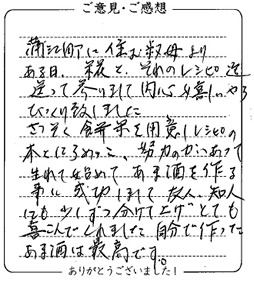 ご意見・ご感想
蒲江町に住む叔母より
ある日、糀と、それのレシピ迄
送って参りまして内心嬉しいやら
びっくり致しました
さっそく餅米を用意しレシピの
本とにらめっこ、努力のかいあって
生れて始めて あま酒を作る
事に成功しまして友人、知人
にも少しずつ分けて上げとても
喜こんでくれました 自分で作った
あま酒は最高です。
ありがとうございました！